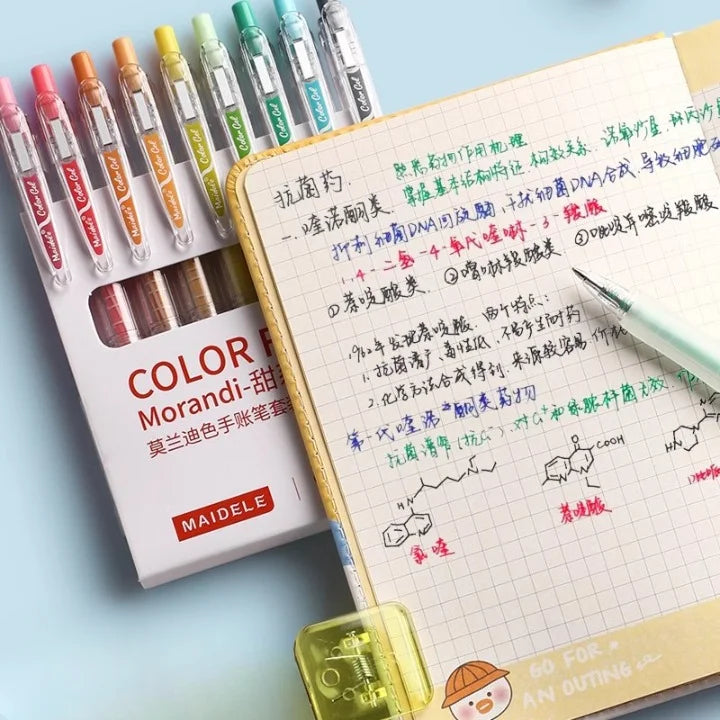 Color Gel
Color Gel
Color Gel
Color Gel
Color Gel
Color Gel
Color Gel
Color Gel
Maidele
Maidele
Maidele
Maidele
Maidele
COLOR
Morandi-甜
莫兰迪色手账笔套装
MAIDELE
抗菌药.
药物作用机理
掌握基本结构特征.构效关系.诺氟沙星.
一.喹诺酮类.
抑制细菌DNA回旋酶,干扰细菌DNA合成,导致细胞
1.4-二氢-4-氧代喹啉-3-羧酸
①萘啶酸类. ②噌啉羧酸类 ③吡啶并嘧啶羧酸
1962年发现萘啶酸.两个特点:
1.抗菌谱广,毒性低,不易产生耐药
2.化学方法合成得到,来源较容易
第一代喹诺酮类药物
抗菌谱窄(抗G-)对G+和绿脓杆菌无效.
H
N
N
O
COOH
N
N
N
氯喹
萘啶酸
GO FOR
AN OUTING